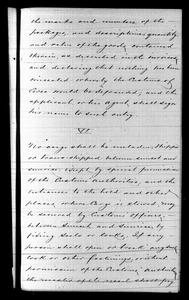 the marks and numbers of the
packages, and description, quantity
and value of the goods contained
therein, as described in the invoices,
and declaring that nothing has been
omitted whereby the Customs of
would be defrauded; and the
applicant or his Agent shall sign
his name to such entry.
VI.
No cargo shall be unladen, Shipped
or transhipped between sunset and
sunrise except by special permission
of the Customs Authorities, and the
entrances to the hold and other
places where Cargo is stowed may
be secured by Customs officers,
between Sunset and Sunrise, by
fixing Seals or Any
person shall open or break any
lock or other fastenings, without
permission of the Customs Authority
the master of the vessel shall pay